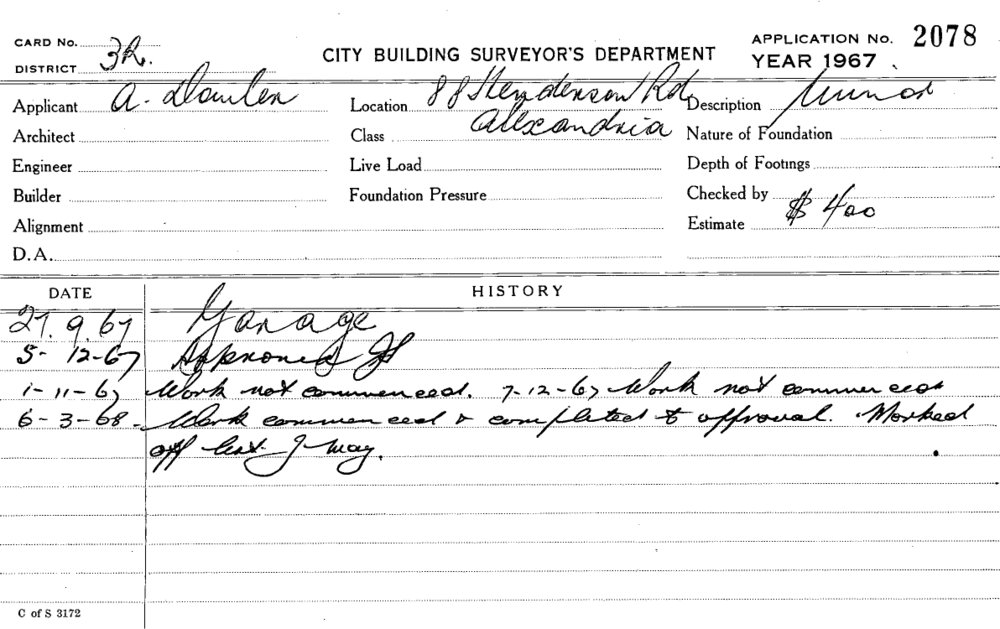 CARD No.
DISTRICT 3R.
CITY BUILDING SURVEYOR'S DEPARTMENT
APPLICATION No. 2078
YEAR 1967
Applicant A.
Location 88 Henderson Rd
Alexandria
Description Minor
Architect
Class
Nature of Foundation
Engineer
Live Load
Depth of Footings
Builder
Foundation Pressure
Checked by
Alignment
Estimate $ 400
D.A.
DATE
HISTORY
27.9.67 Garage
5-12-67 Approved
1-11-67 Work not commenced. 7-12-67 Work not commenced
6-3-68- Work commenced & completed to approval. Marked
off list. J May.
C of S 3172